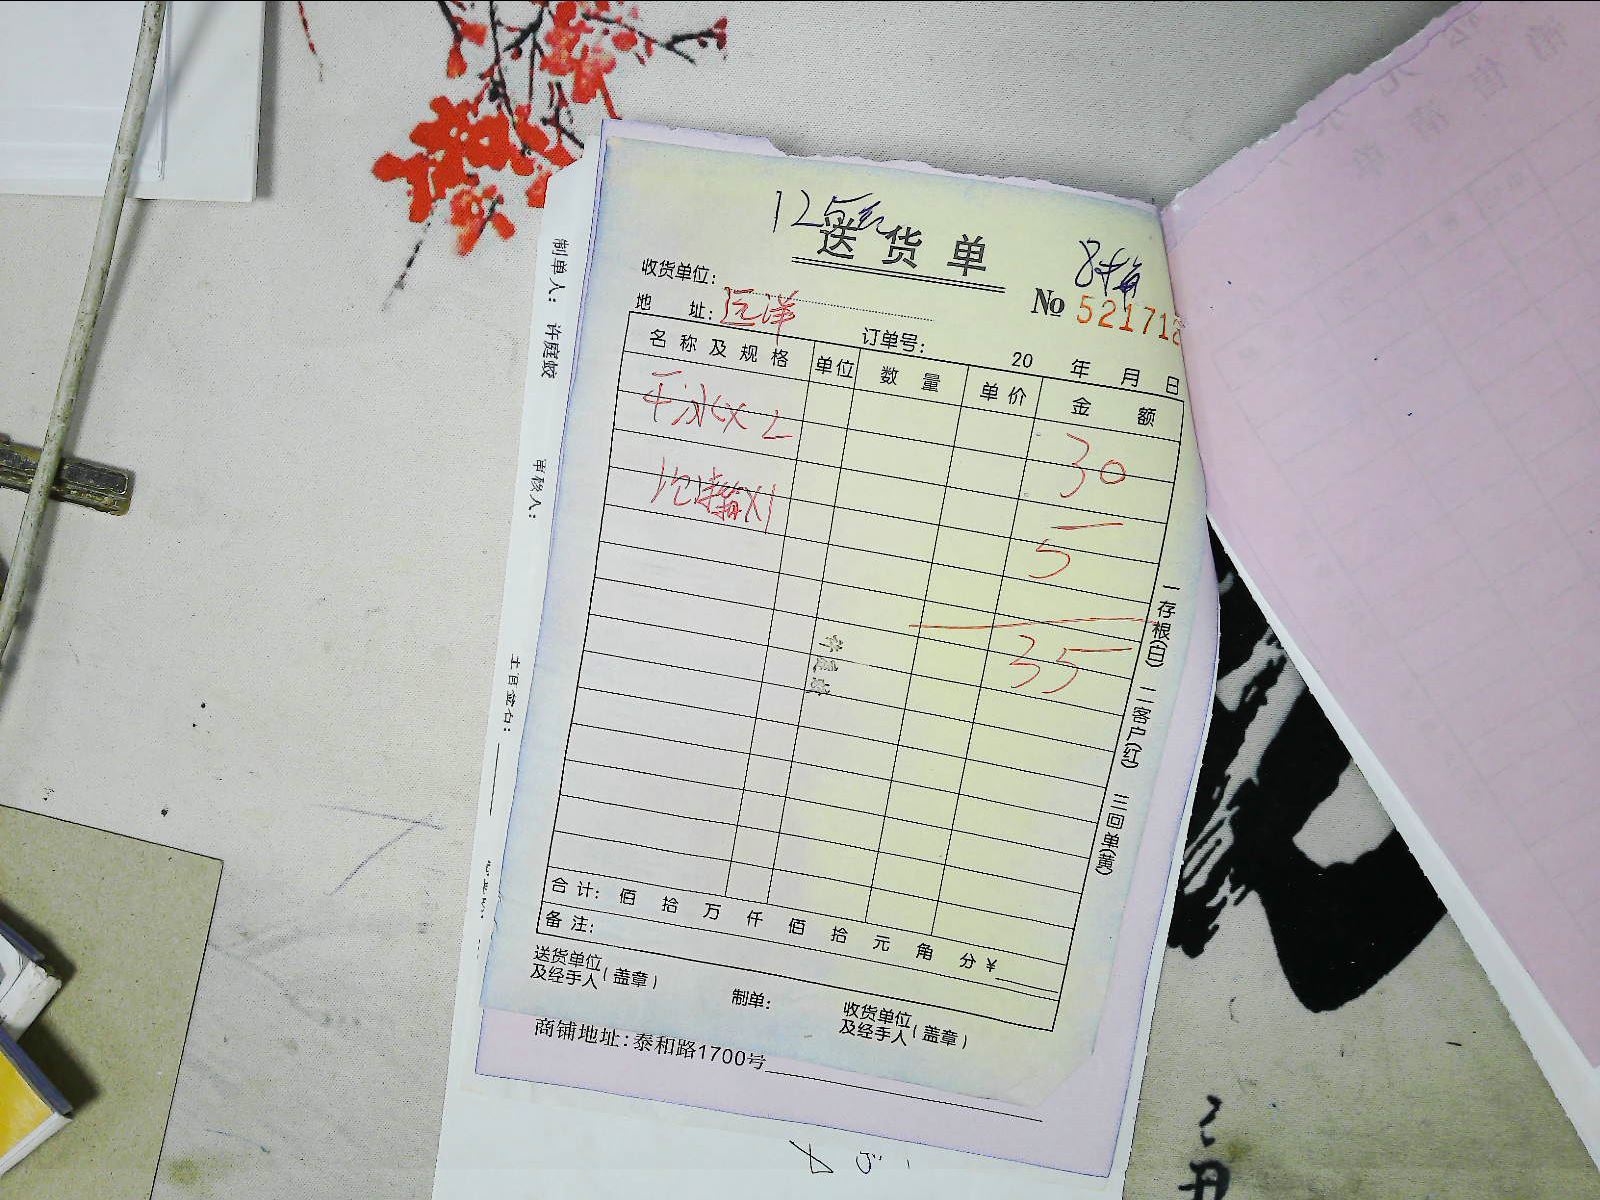 送货单
收货单位：
No 521718
地 址：远洋
订单号：
20 年 月 日
名称及规格 单位 数量 单价 金额
干冰X2 30
X1 5
35
一存根(白) 二客户(红) 三回单(黄)
合计： 佰 拾 万 仟 佰 拾 元 角 分 ¥
备注：
送货单位及经手人(盖章)
制单：
收货单位及经手人(盖章)
商铺地址：泰和路1700号
制单人： 许庭蛟
审核人：